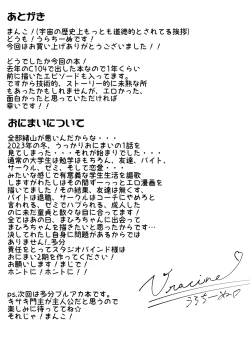 あとがき
まんこ！(宇宙の歴史上もっとも道徳的とされてる挨拶)
どうも！うらちーぬです！
今回はお買い上げありがとうございました！！
どうでしたか今回の本！
去年のC104で出した本なので1年くらい
前に描いたエピソードも入ってます。
ですから技術的、ストーリー的に未熟な所
もあったかもしれませんが、エロかった、
面白かったと思っていただければ
幸いです！！
おにまいについて
全部緒山が悪いんだからな・・・
2023年の冬、うっかりおにまいの1話を
見てしまった・・・それが始まりでした・・・
通常の大学生は勉学はもちろん、友達、バイト、
サークル、ゼミ、そして恋愛・・・
みたいな感じで有意義な学生生活を謳歌
しますがわたしはその間ずーっっとエロ漫画を
描いてました！その結果、友達は無くす、
バイトは退職、サークルはコーチにやめろと
言われる、ゼミでハブられる、成人した
のに未だ童貞と散々な目に合ってます！
全てはあの日、まひろちゃんに出会って
まひろちゃんを描きたいと思ったからです。
決してわたし自身に問題があるからでは
ありません！_多分
責任をとってスタジオバインド様は
おにまい2期を作ってください！
お願いします！まじで！
ホントに！ホントに！！
ps.次回は多分ブルアカ本です。
キサキ門主が主人公だと思うので
楽しみに待っててね☆
それじゃ！まんこ！
Uracine
うらちーぬ